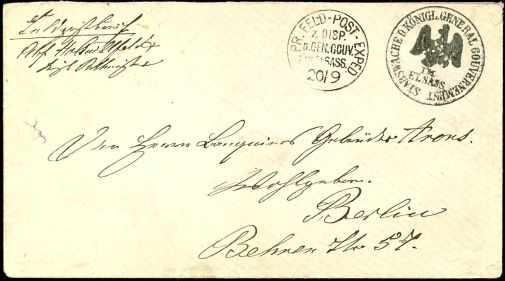 Feldpostbrief
K. PR. FELD-POST-EXPED
Z. DISP.
D. GEN. GOUV.
I. ELSASS.
20/9
STABSWACHE D. KÖNIGL. GENERAL GOUVERNEMENT
IM
ELSASS
Den Herrn Banquiers Gebrüder Arons.
Wohlgeboren.
Berlin
Behren Str. 57.